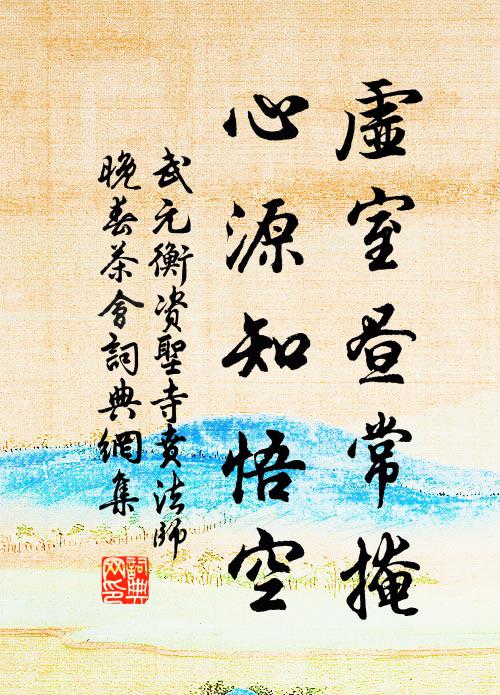 虛室晝常掩
心源知悟空
武元衡資聖寺賁法師
晚春茶會詞典網集
詞典
网印